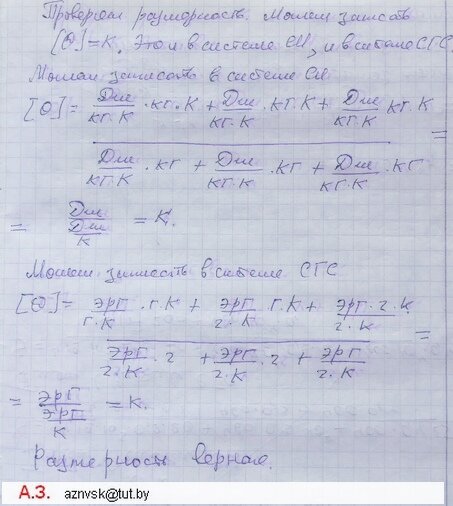 Проверяем размерность. Можем записать
[Θ]=К. Это и в системе СИ, и в системе СГС.
Можем записать в системе СИ
[Θ]= Дж/кг·К ·кг·К + Дж/кг·К ·кг·К + Дж/кг·К кг·К
=
Дж/кг·К ·кг + Дж/кг·К ·кг + Дж/кг·К ·кг
= Дж/Дж/К = К.
Можем записать в системе СГС
[Θ]= эрг/г·К ·г·К + эрг/г·К г·К + эрг·г·К/г·К
=
эрг/г·К ·г + эрг/г·К ·г + эрг/г·К
= эрг/эрг/К = К.
Размерность верная.
А.З. aznvsk@tut.by